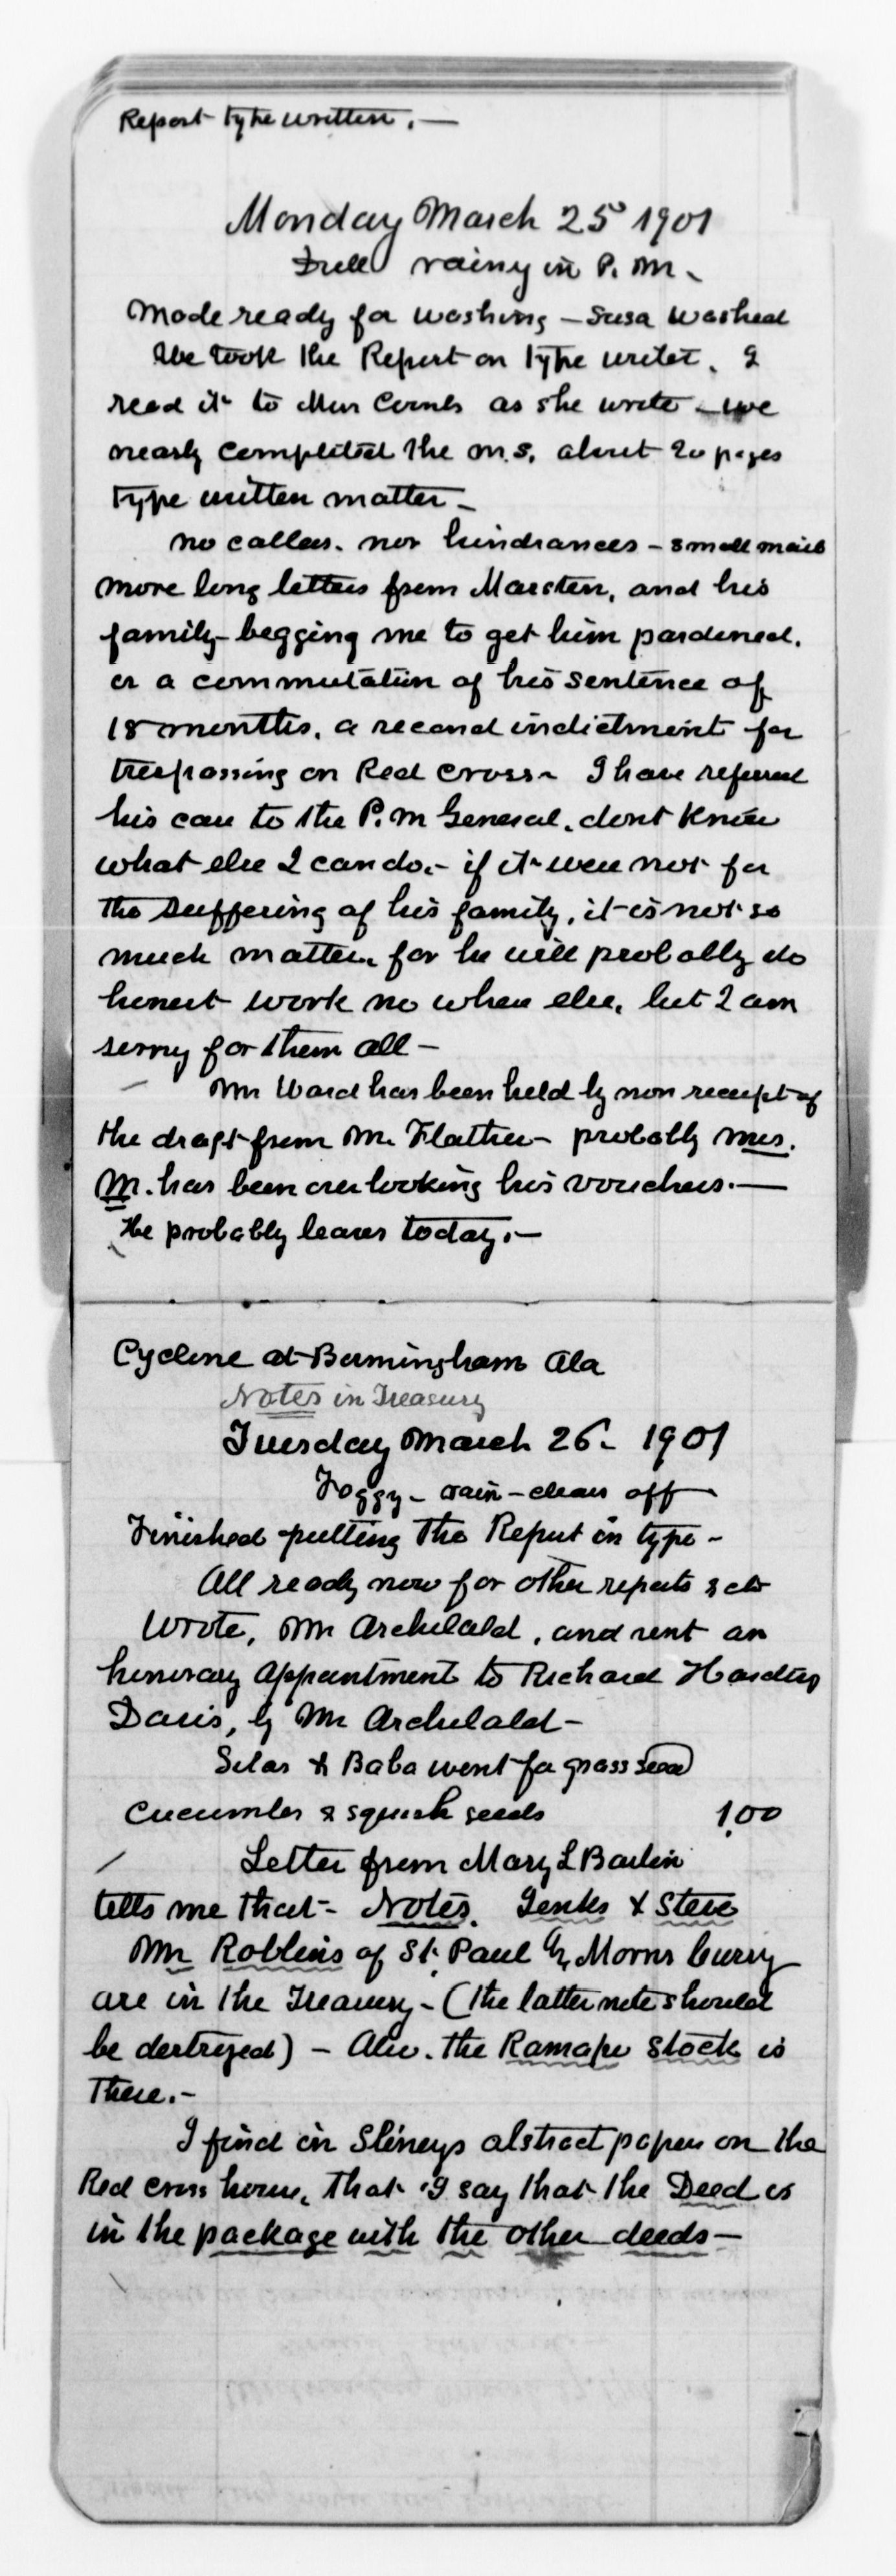 Report type written. —
Monday March 25 1901
Dull rainy in P. M.
Made ready for washing – Susa washed
We took the Report on type writer. I
read it to Miss Coombs as she wrote – we
nearly completed the m.s. about 20 pages
type written matter –
no callers. nor hindrances – small mail
more long letters from Marsten, and his
family – begging me to get him pardoned.
or a commutation of his sentence of
18 months, a second indictment for
trespassing on Red Cross – I have referred
his case to the P. M General. dont know
what else I can do. – if it were not for
the suffering of his family, it is not so
much matter. for he will probably do
honest work no where else, but I am
sorry for them all –
Mr Ward has been held by non receipt of
the draft from Mr. Flather – probably Mrs.
M. has been overlooking his vouchers. —
He probably leaves today. —
Cyclone at Birmingham Ala
Notes in Treasury
Tuesday March 26. 1901
Foggy – rain – clears off
Finished putting the Report in type –
All ready now for other reports & etc
Wrote, Mr Archibald, and sent an
honorary appointment to Richard Harding
Davis, by Mr Archibald –
Silas & Baba went for grass seed
Cucumber & squash seeds 1.00
Letter from Mary L
tells me that – Notes. Jenks & Steve
Mr Robbins of St. Paul & Morris Curry
are in the Treasury – (the latter note should
be destroyed) – Also. the Ramapo Stock is
There. –
I find in Slineys abstract paper on the
Red Cross house, that I say that the Deed is
in the package with the other deeds —